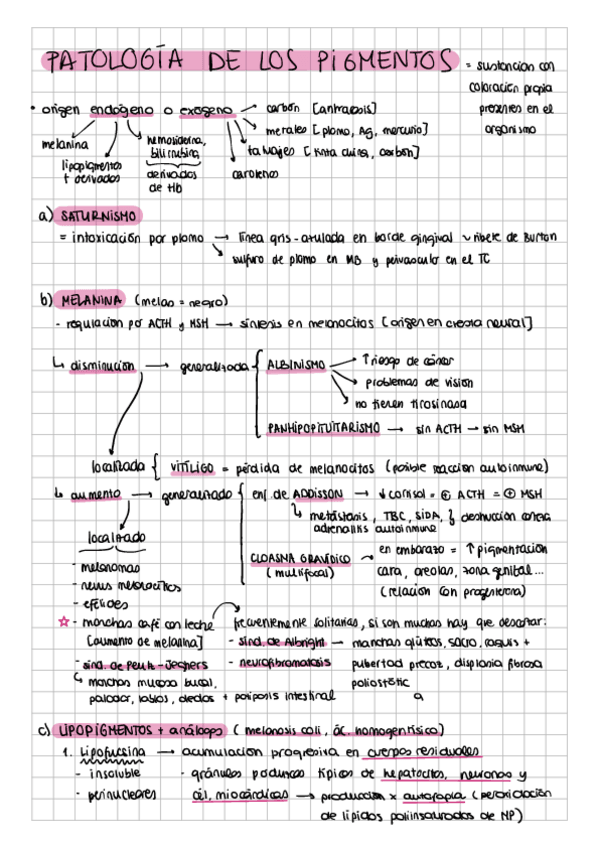 PATOLOGÍA DE LOS PIGMENTOS = sustancias con
coloración propia
presentes en el
organismo
• origen endógeno o exógeno → carbón [antracosis]
→ metales [plomo, Ag, mercurio]
→ tatuajes [tinta china, carbón]
carotenos
melanina
lipopigmentos
+ derivados
hemosiderina,
bilirrubina
derivados
de Hb
a) SATURNISMO
= intoxicación por plomo → línea gris-azulada en borde gingival ~ ribete de Burton
→ sulfuro de plomo en MB y perivascular en el TC
b) MELANINA (melas = negro)
- regulación por ACTH y MSH → síntesis en melanocitos [origen en cresta neural]
↳ disminución → generalizada { ALBINISMO → ↑ riesgo de cáncer
→ problemas de visión
→ no tienen tirosinasa
PANHIPOPITUITARISMO → sin ACTH → sin MSH
localizada { VITÍLIGO = pérdida de melanocitos (posible reacción autoinmune)
↳ aumento → generalizado { enf. de ADDISSON → ↓ cortisol = ⊕ ACTH = ⊕ MSH
↳ metástasis, TBC, SIDA, } destrucción corteza
adrenalitis autoinmune
CLOASMA GRAVÍDICO → en embarazo = ↑ pigmentación
(multifocal) cara, areolas, zona genital...
(relación con progesterona)
localizado
- melanomas
- nevus melanocíticos
- efélides
☆ - manchas café con leche → frecuentemente solitarias, si son muchas hay que descartar:
[aumento de melanina] - sínd. de Albright → manchas glúteos, sacro, raquis +
pubertad precoz, displasia fibrosa
poliostótica
- neurofibromatosis
- sínd. de Peutz-Jeghers
↳ manchas mucosa bucal,
paladar, labios, dedos + poliposis intestinal
c) LIPOPIGMENTOS + análogos (melanosis coli, ác. homogentísico)
1. Lipofucsina → acumulación progresiva en cuerpos residuales
- insoluble - gránulos parduzcos típicos de hepatocitos, neuronas y
- perinucleares cél. miocárdicas → producción x autofagia (peroxidación
de lípidos poliinsaturados de MP)